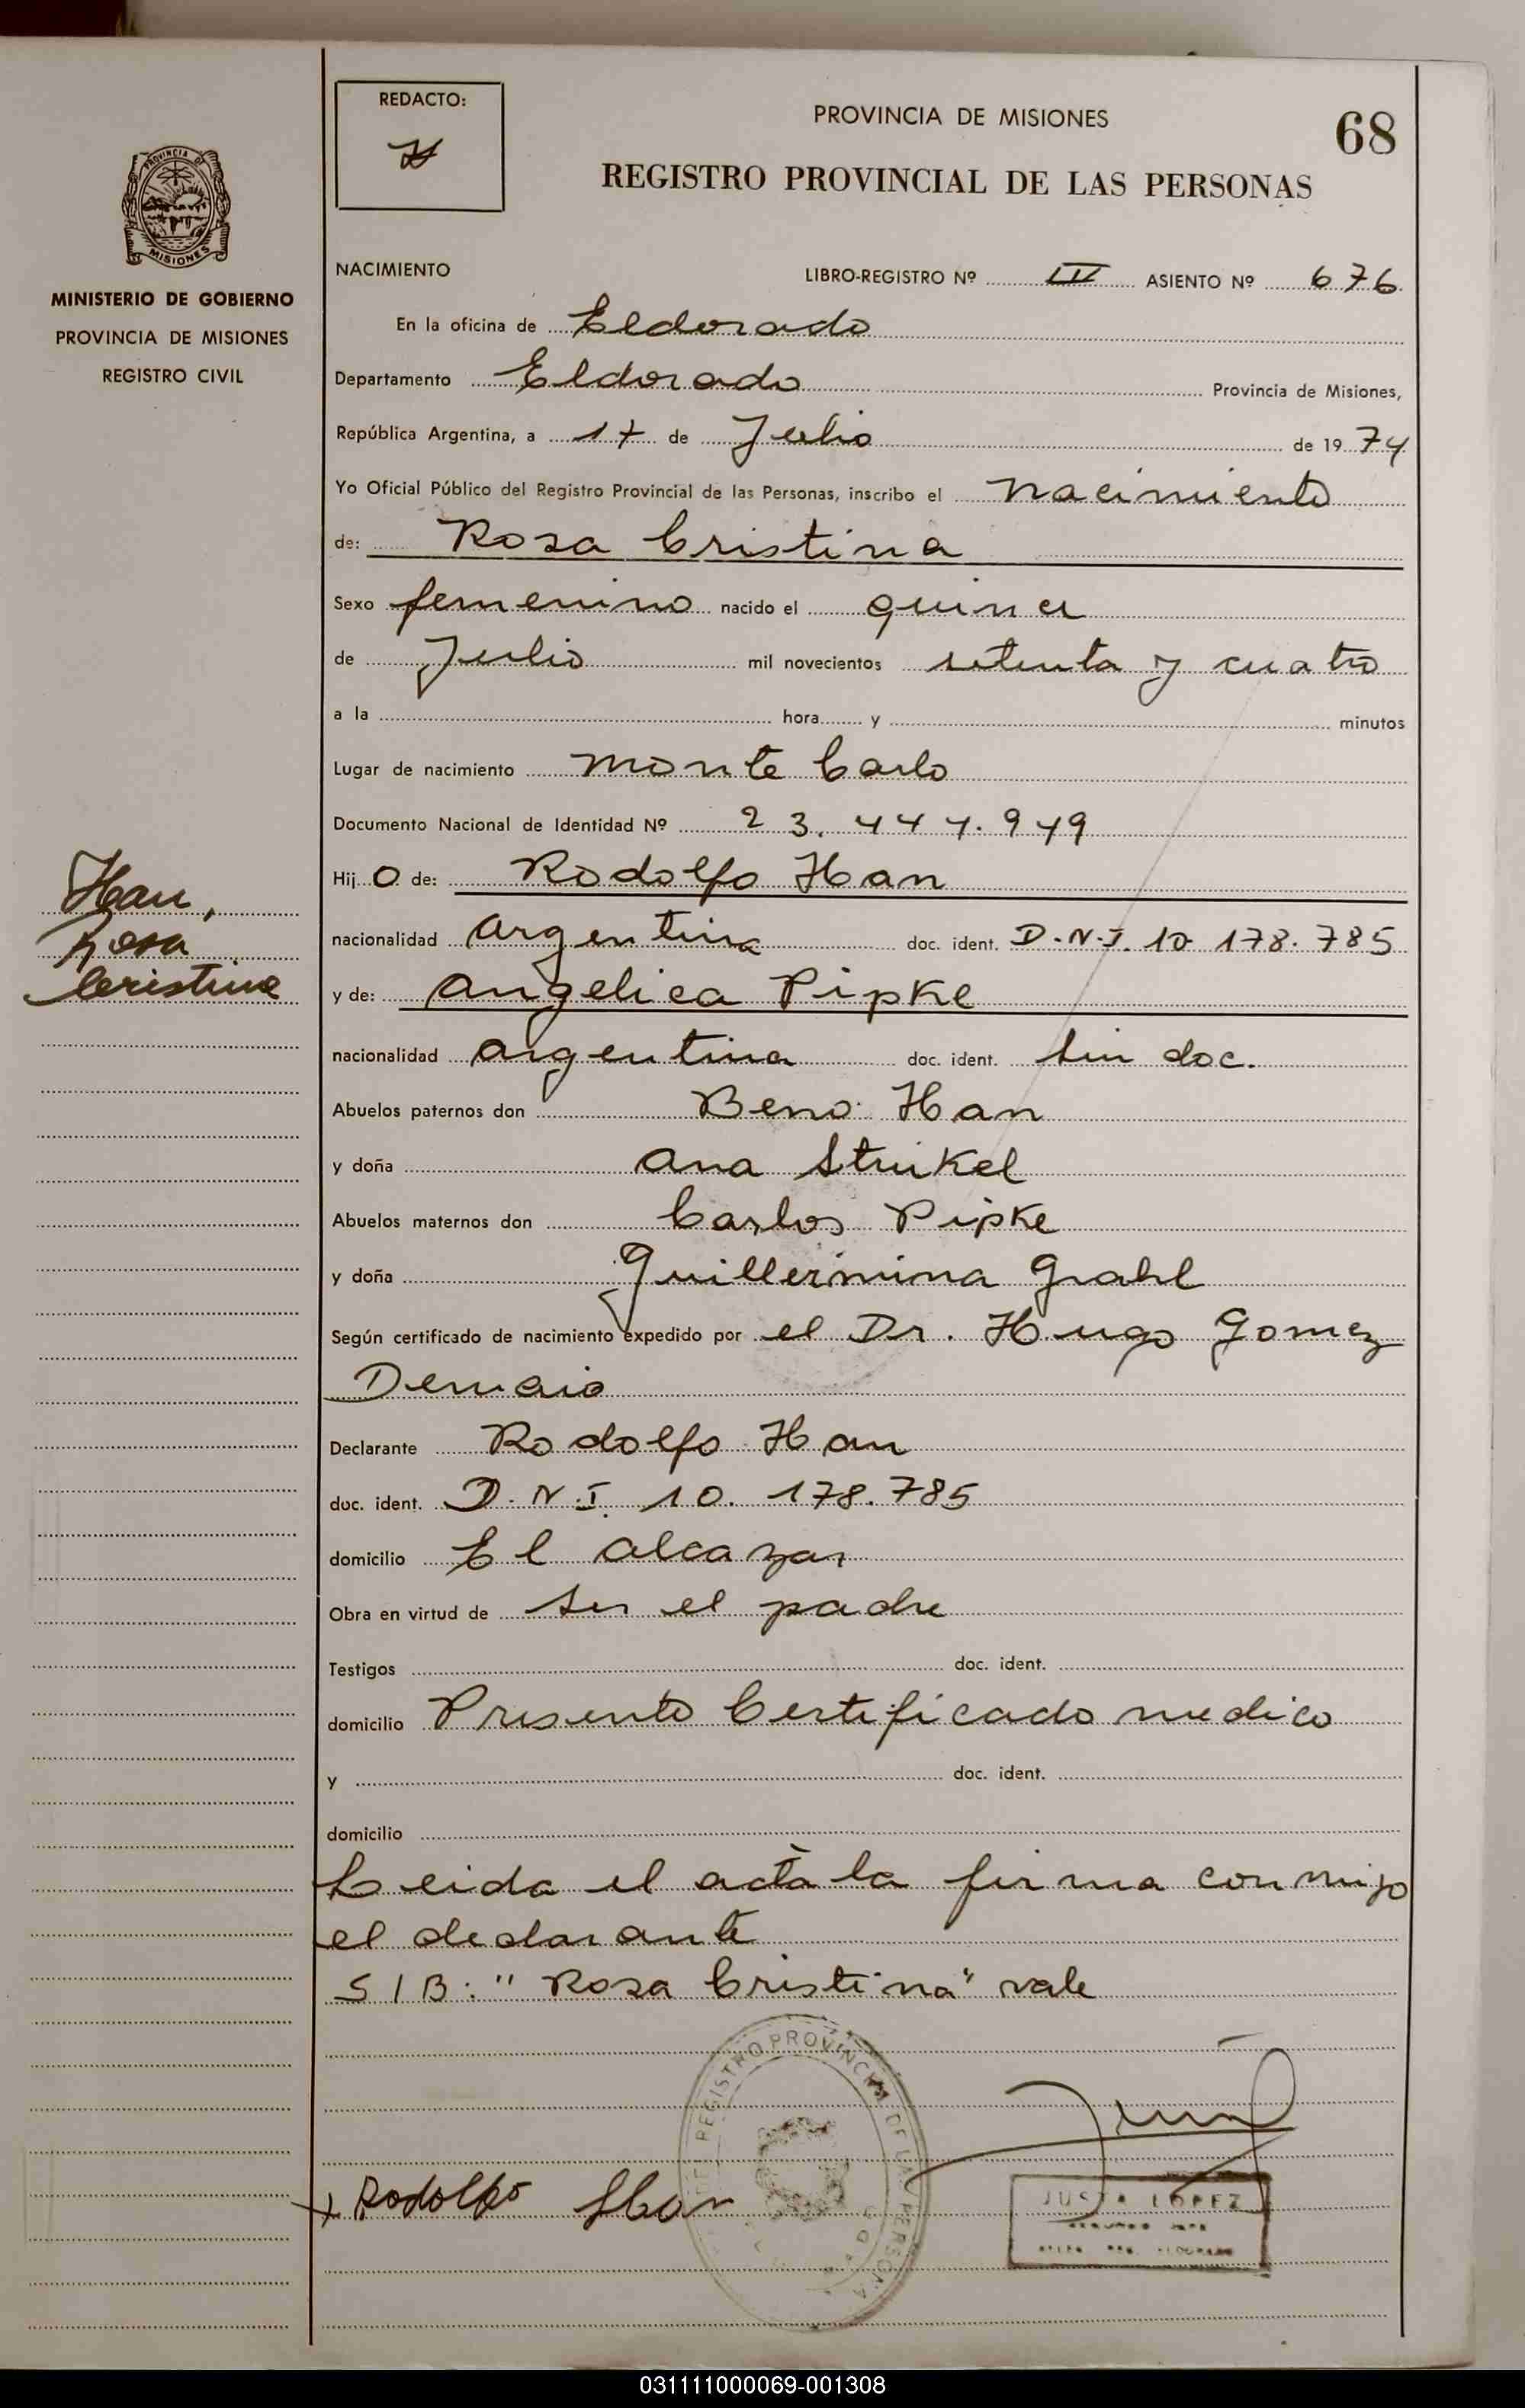 REDACTO:
PROVINCIA DE MISIONES
68
REGISTRO PROVINCIAL DE LAS PERSONAS
PROVINCIA DE
MISIONES
MINISTERIO DE GOBIERNO
PROVINCIA DE MISIONES
REGISTRO CIVIL
NACIMIENTO LIBRO-REGISTRO Nº III ASIENTO Nº 676
En la oficina de Eldorado
Departamento Eldorado Provincia de Misiones,
República Argentina, a 17 de Julio de 1974
Yo Oficial Público del Registro Provincial de las Personas, inscribo el nacimiento
de: Rosa Cristina
Sexo femenino nacido el quince
de Julio mil novecientos setenta y cuatro
a la hora y minutos
Lugar de nacimiento Monte Carlo
Documento Nacional de Identidad Nº 23.447.949
Hijo de: Rodolfo Han
nacionalidad argentina doc. ident. D.N.I. 10 178.785
y de: Angelica Pipke
nacionalidad argentina doc. ident. sin doc.
Abuelos paternos don Beno Han
y doña Ana Strukel
Abuelos maternos don Carlos Pipke
y doña Guillermina Grahl
Según certificado de nacimiento expedido por el Dr. Hugo Gomez
Demaio
Declarante Rodolfo Han
doc. ident. D.N.I. 10.178.785
domicilio El alcazar
Obra en virtud de ser el padre
Testigos doc. ident.
domicilio Presento Certificado medico
y doc. ident.
domicilio
Leida el acta la firma conmigo
el declarante
S/B: "Rosa Cristina" vale
Han,
Rosa
Cristina
REGISTRO PROVINCIAL DE LAS PERSONAS
x Rodolfo Han
JUSTA LOPEZ
031111000069-001308